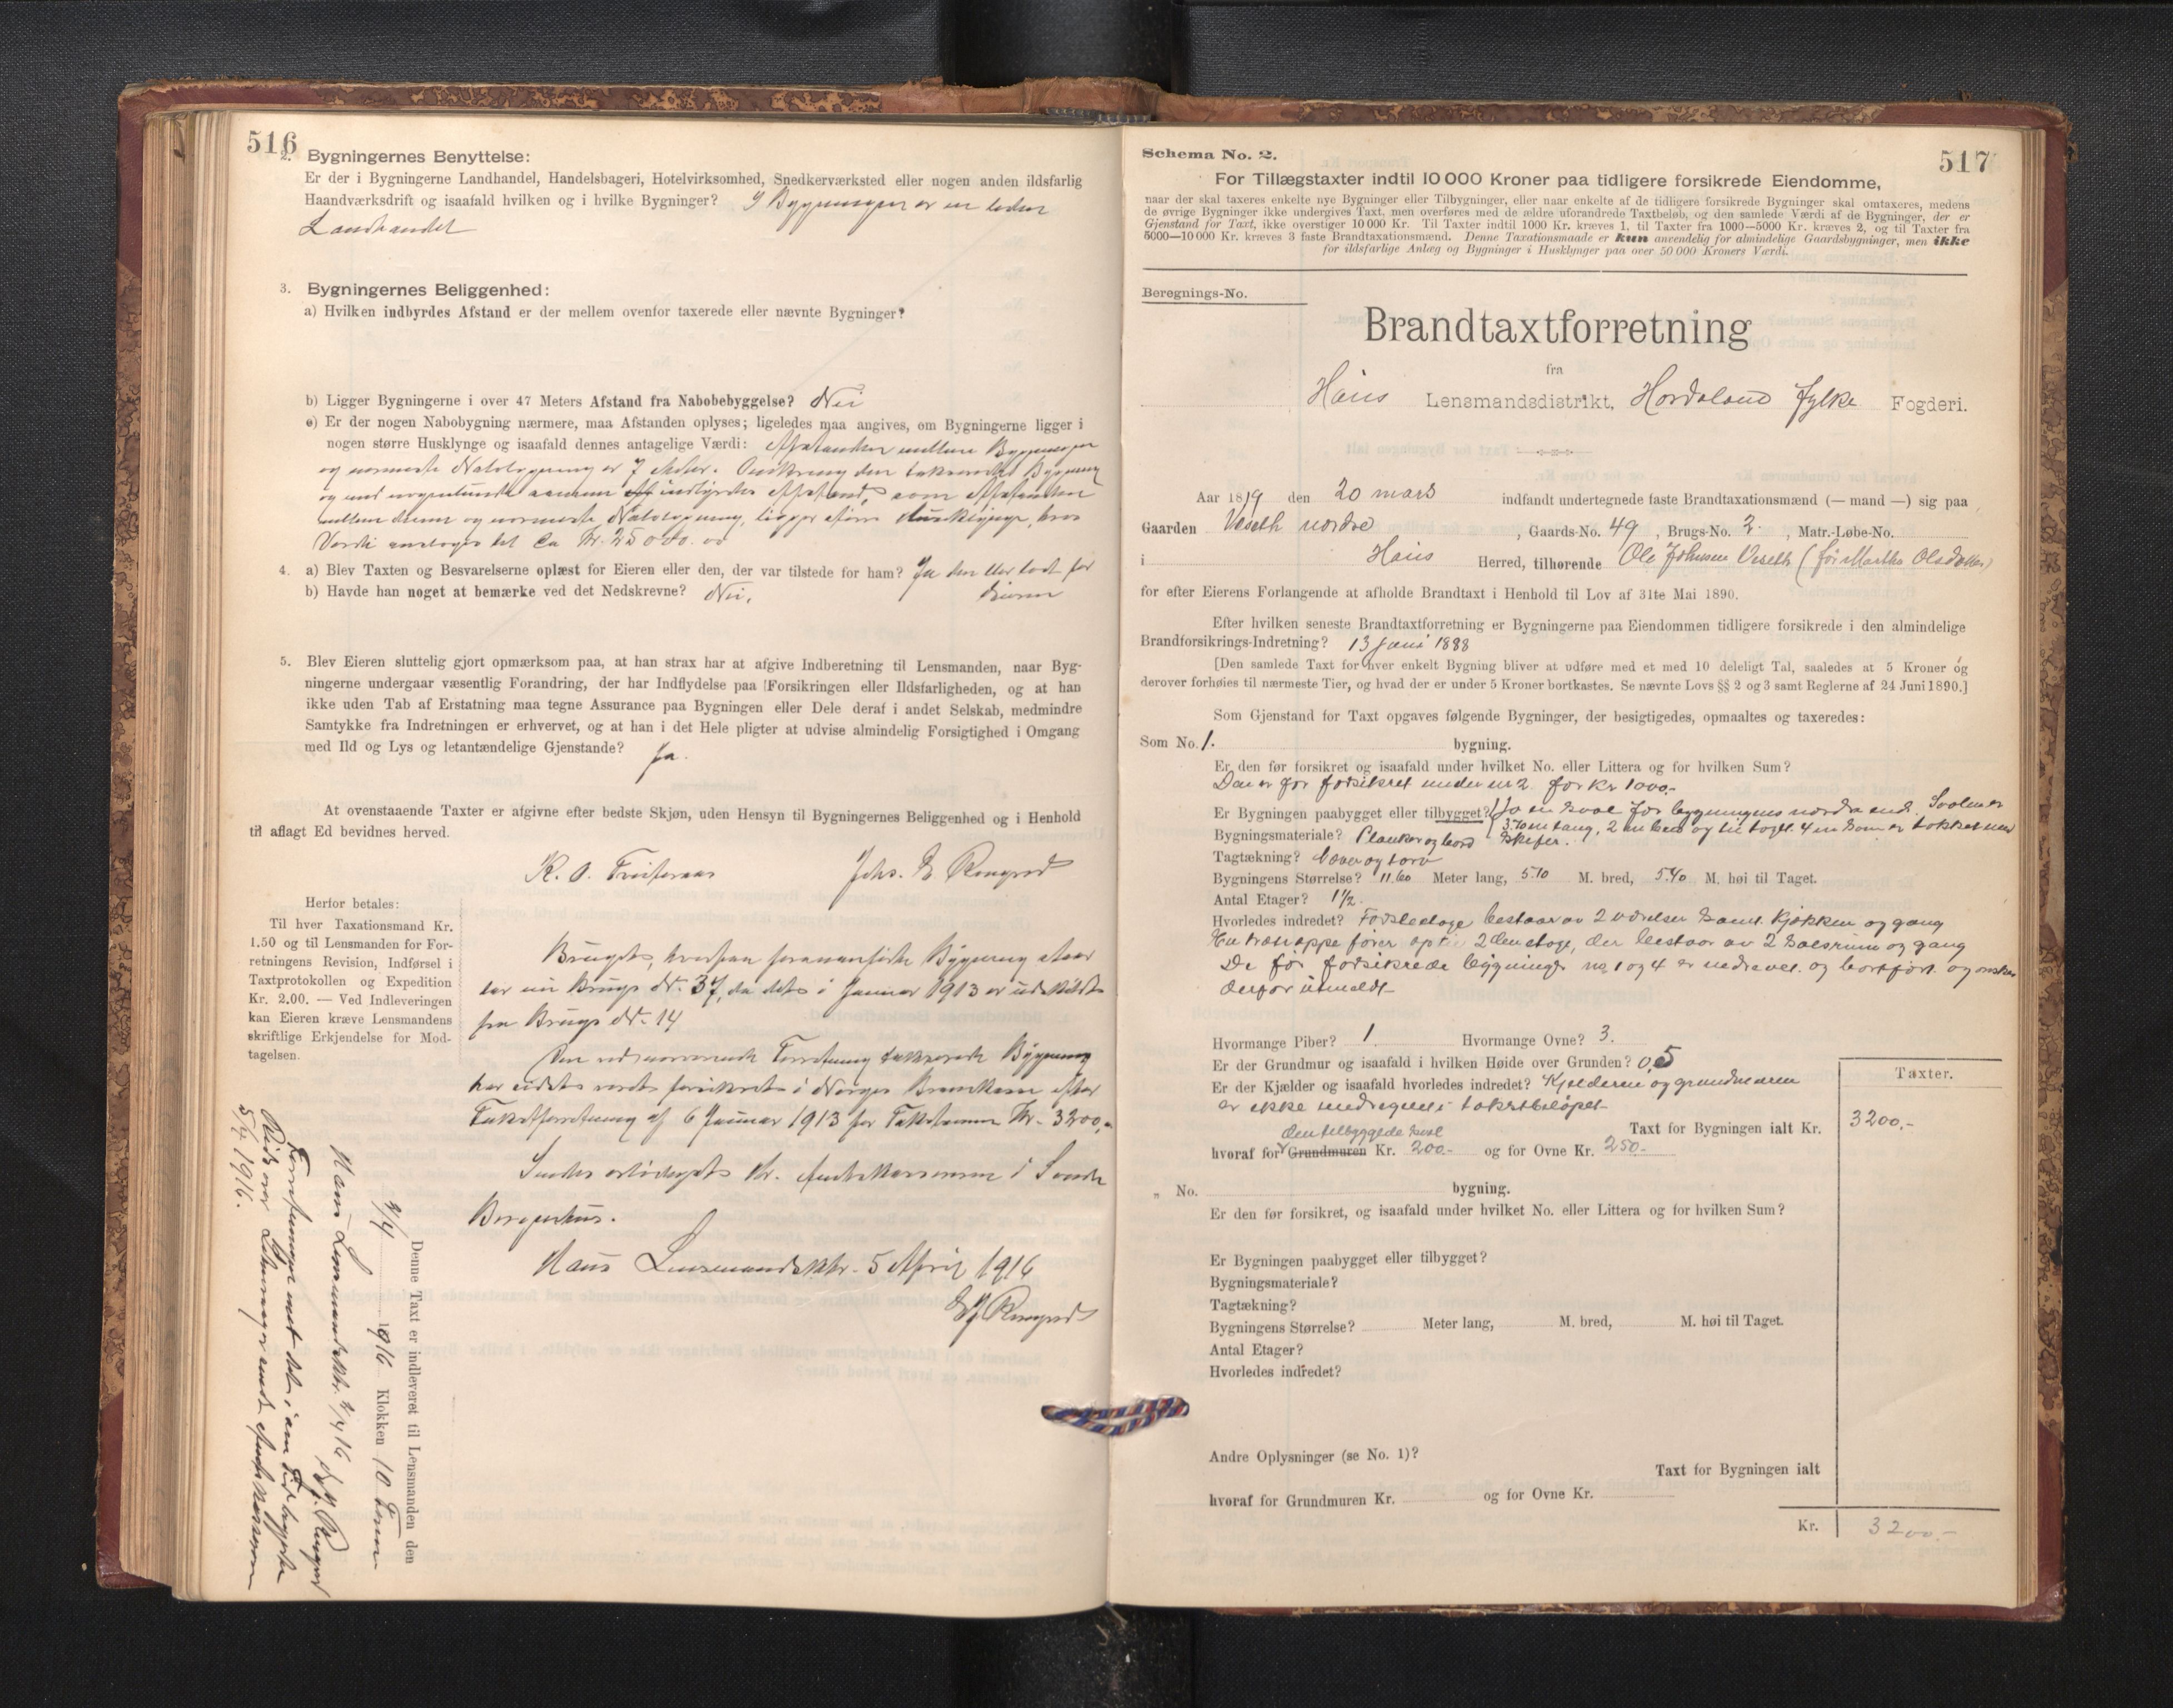 516
2. Bygningernes Benyttelse:
Er der i Bygningerne Landhandel, Handelsbageri, Hotelvirksomhed, Snedkerværksted eller nogen anden ildsfarlig
Haandværksdrift og isaafald hvilken og i hvilke Bygninger? I Bygningen er en liden
Landhandel
3. Bygningernes Beliggenhed:
a) Hvilken indbyrdes Afstand er der mellem ovenfor taxerede eller nævnte Bygninger?
b) Ligger Bygningerne i over 47 Meters Afstand fra Nabobebyggelse? Nei
c) Er der nogen Nabobygning nærmere, maa Afstanden oplyses; ligeledes maa angives, om Bygningerne ligger i
nogen større Husklynge og isaafald dennes antagelige Værdi: Afstanden mellem Bygningen
og nærmeste Nabobygning er 7 Meter. Omkring den takserede Bygning
og med nogenlunde samme indbyrdes Afstand, som Afstanden
mellem denne og nærmeste Nabobygning, ligger større Husklynge, hvis
Værdi antages til Ca Kr. 25000.00
4. a) Blev Taxten og Besvarelserne oplæst for Eieren eller den, der var tilstede for ham? Ja den blev læst for
Eieren
b) Havde han noget at bemærke ved det Nedskrevne? Nei.
5. Blev Eieren sluttelig gjort opmærksom paa, at han strax har at afgive Indberetning til Lensmanden, naar Byg-
ningerne undergaar væsentlig Forandring, der har Indflydelse paa Forsikringen eller Ildsfarligheden, og at han
ikke uden Tab af Erstatning maa tegne Assurance paa Bygningen eller Dele deraf i andet Selskab, medmindre
Samtykke fra Indretningen er erhvervet, og at han i det Hele pligter at udvise almindelig Forsigtighed i Omgang
med Ild og Lys og letantændelige Gjenstande? Ja.
At ovenstaaende Taxter er afgivne efter bedste Skjøn, uden Hensyn til Bygningernes Beliggenhed og i Henhold
til aflagt Ed bevidnes herved.
K. O.
Johs. E
Herfor betales:
Til hver Taxationsmand Kr.
1.50 og til Lensmanden for For-
retningens Revision, Indførsel i
Taxtprotokollen og Expedition
Kr. 2.00. — Ved Indleveringen
kan Eieren kræve Lensmandens
skriftlige Erkjendelse for Mod-
tagelsen.
Bruget, hvorpaa forananførte Bygning staar
har nu Brugs Nr. 37, da det i Januar 1913 er udskildt
fra Brugs Nr. 14
Den ved nærværende Forretning takserede Bygning
har sidst været forsikret i Norges Brandkasse efter
Takstforretning af 6 Januar 1913 for Takstsum Kr. 3200,-
Sendes ærbødigst Hr. Amtskassereren i Søndre
Bergenhus.
Haus Lensmandsktr. 5 April 1916
Denne Taxt er indleveret til Lensmanden den
2/4 1916 Klokken 10 Form
Haus Lensmandsktr. 2/4 16
5/4 1916.
Schema No. 2.
517
For Tillægstaxter indtil 10 000 Kroner paa tidligere forsikrede Eiendomme,
naar der skal taxeres enkelte nye Bygninger eller Tilbygninger, eller naar enkelte af de tidligere forsikrede Bygninger skal omtaxeres, medens
de øvrige Bygninger ikke undergives Taxt, men overføres med de ældre uforandrede Taxtbeløb, og den samlede Værdi af de Bygninger, der er
Gjenstand for Taxt, ikke overstiger 10 000 Kr. Til Taxter indtil 1000 Kr. kræves 1, til Taxter fra 1000—5000 Kr. kræves 2, og til Taxter fra
5000—10 000 Kr. kræves 3 faste Brandtaxationsmænd. Denne Taxationsmaade er kun anvendelig for almindelige Gaardsbygninger, men ikke
for ildsfarlige Anlæg og Bygninger i Husklynger paa over 50 000 Kroners Værdi.
Beregnings-No.
Brandtaxtforretning
fra
Haus Lensmandsdistrikt, Hordaland fylke Fogderi.
Aar 1819 den 20 mars indfandt undertegnede faste Brandtaxationsmænd (— mand —) sig paa
Gaarden Veseth nordre, Gaards-No. 49, Brugs-No. 2, Matr.-Løbe-No.
i Haus Herred, tilhørende Ole Johnsen Veseth (før Martha Olsdatter)
for efter Eierens Forlangende at afholde Brandtaxt i Henhold til Lov af 31te Mai 1890.
Efter hvilken seneste Brandtaxtforretning er Bygningerne paa Eiendommen tidligere forsikrede i den almindelige
Brandforsikrings-Indretning? 13 Juni 1888
[Den samlede Taxt for hver enkelt Bygning bliver at udføre med et med 10 deleligt Tal, saaledes at 5 Kroner og
derover forhøies til nærmeste Tier, og hvad der er under 5 Kroner bortkastes. Se nævnte Lovs §§ 2 og 3 samt Reglerne af 24 Juni 1890.]
Som Gjenstand for Taxt opgaves følgende Bygninger, der besigtigedes, opmaaltes og taxeredes:
Som No. 1. bygning.
Er den før forsikret og isaafald under hvilket No. eller Littera og for hvilken Sum?
Den er før forsikret under nr 2 for Kr 1000.-
Er Bygningen paabygget eller tilbygget? Ja en sval for bygningens nordre ende. Svalen er
3.70 m lang, 2 m bred og til taget 4 m som er tækket med
skifer.
Bygningsmateriale? Planker og bord
Tagtækning? Næver og torv
Bygningens Størrelse? 11.60 Meter lang, 5.10 M. bred, 5.40 M. høi til Taget.
Antal Etager? 1½.
Hvorledes indredet? Første etage bestaar av 2 værelser samt kjøkken og gang
En trætrappe fører op til 2den etage, der bestaar av 2 soverum og gang
De før forsikrede bygninger no 1 og 4 er nedrevet og bortført og ønskes
derfor utmeldt
Hvormange Piber? 1. Hvormange Ovne? 3.
Er der Grundmur og isaafald i hvilken Høide over Grunden? 0,5
Er der Kjælder og isaafald hvorledes indredet? Kjelderen og grundmuren
er ikke medregnet i takstbeløpet
Taxter.
Taxt for Bygningen ialt Kr. 3200.-
den tilbyggede sval
hvoraf for Grundmuren Kr. 200.- og for Ovne Kr. 250.-
„ No. bygning.
Er den før forsikret, og isaafald under hvilket No. eller Littera og for hvilken Sum?
Er Bygningen paabygget eller tilbygget?
Bygningsmateriale?
Tagtækning?
Bygningens Størrelse? Meter lang, M. bred, M. høi til Taget.
Antal Etager?
Hvorledes indredet?
Andre Oplysninger (se No. 1)?
Taxt for Bygningen ialt
hvoraf for Grundmuren Kr. og for Ovne Kr.
Kr. 3200.-